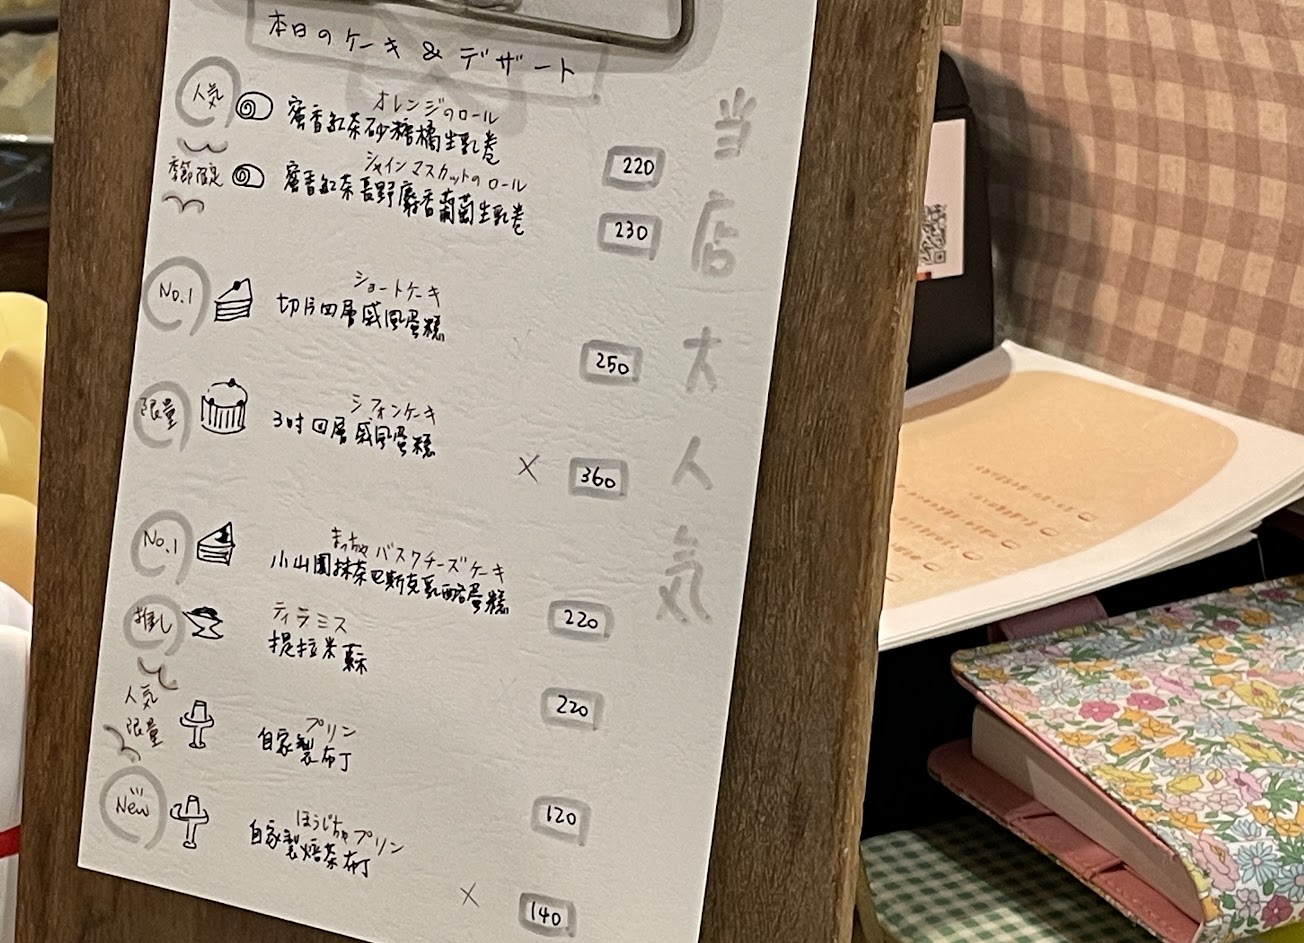 本日のケーキ & デザート
人気
オレンジのロール
蜜香紅茶砂糖橘生乳卷
220
季節限定
シャインマスカットのロール
蜜香紅茶長野麝香葡萄生乳卷
230
No.1
ショートケーキ
切片四層戚風蛋糕
250
限量
シフォンケーキ
3吋四層戚風蛋糕
× 360
No.1
まっちゃバスクチーズケーキ
小山園抹茶巴斯克乳酪蛋糕
220
推し
ティラミス
提拉米蘇
220
人気
限量
プリン
自家製布丁
120
New
ほうじちゃプリン
自家製焙茶布丁
× 140
当店大人気